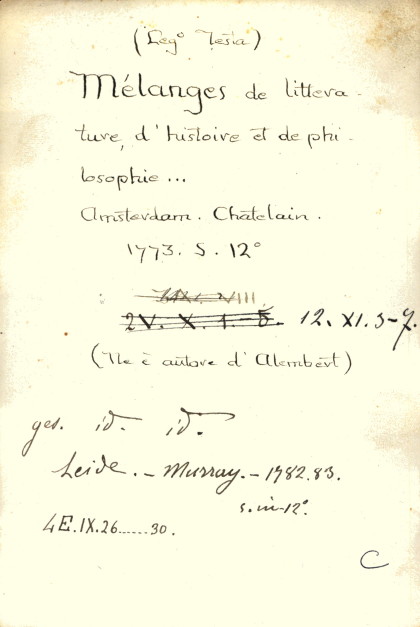 (Leg° Tesia)
Mélanges de littera-
ture, d'histoire et de phi-
losophie...
Amsterdam. Châtelain.
1773. 5. 12°
VIII.
2V. X. 1.-5. 12. XI. 3-7.
(Ne è autore d'Alembert)
ges. id. id.
Leide. - Murray. - 1782.83.
5. in-12°.
4E.IX.26......30.
C